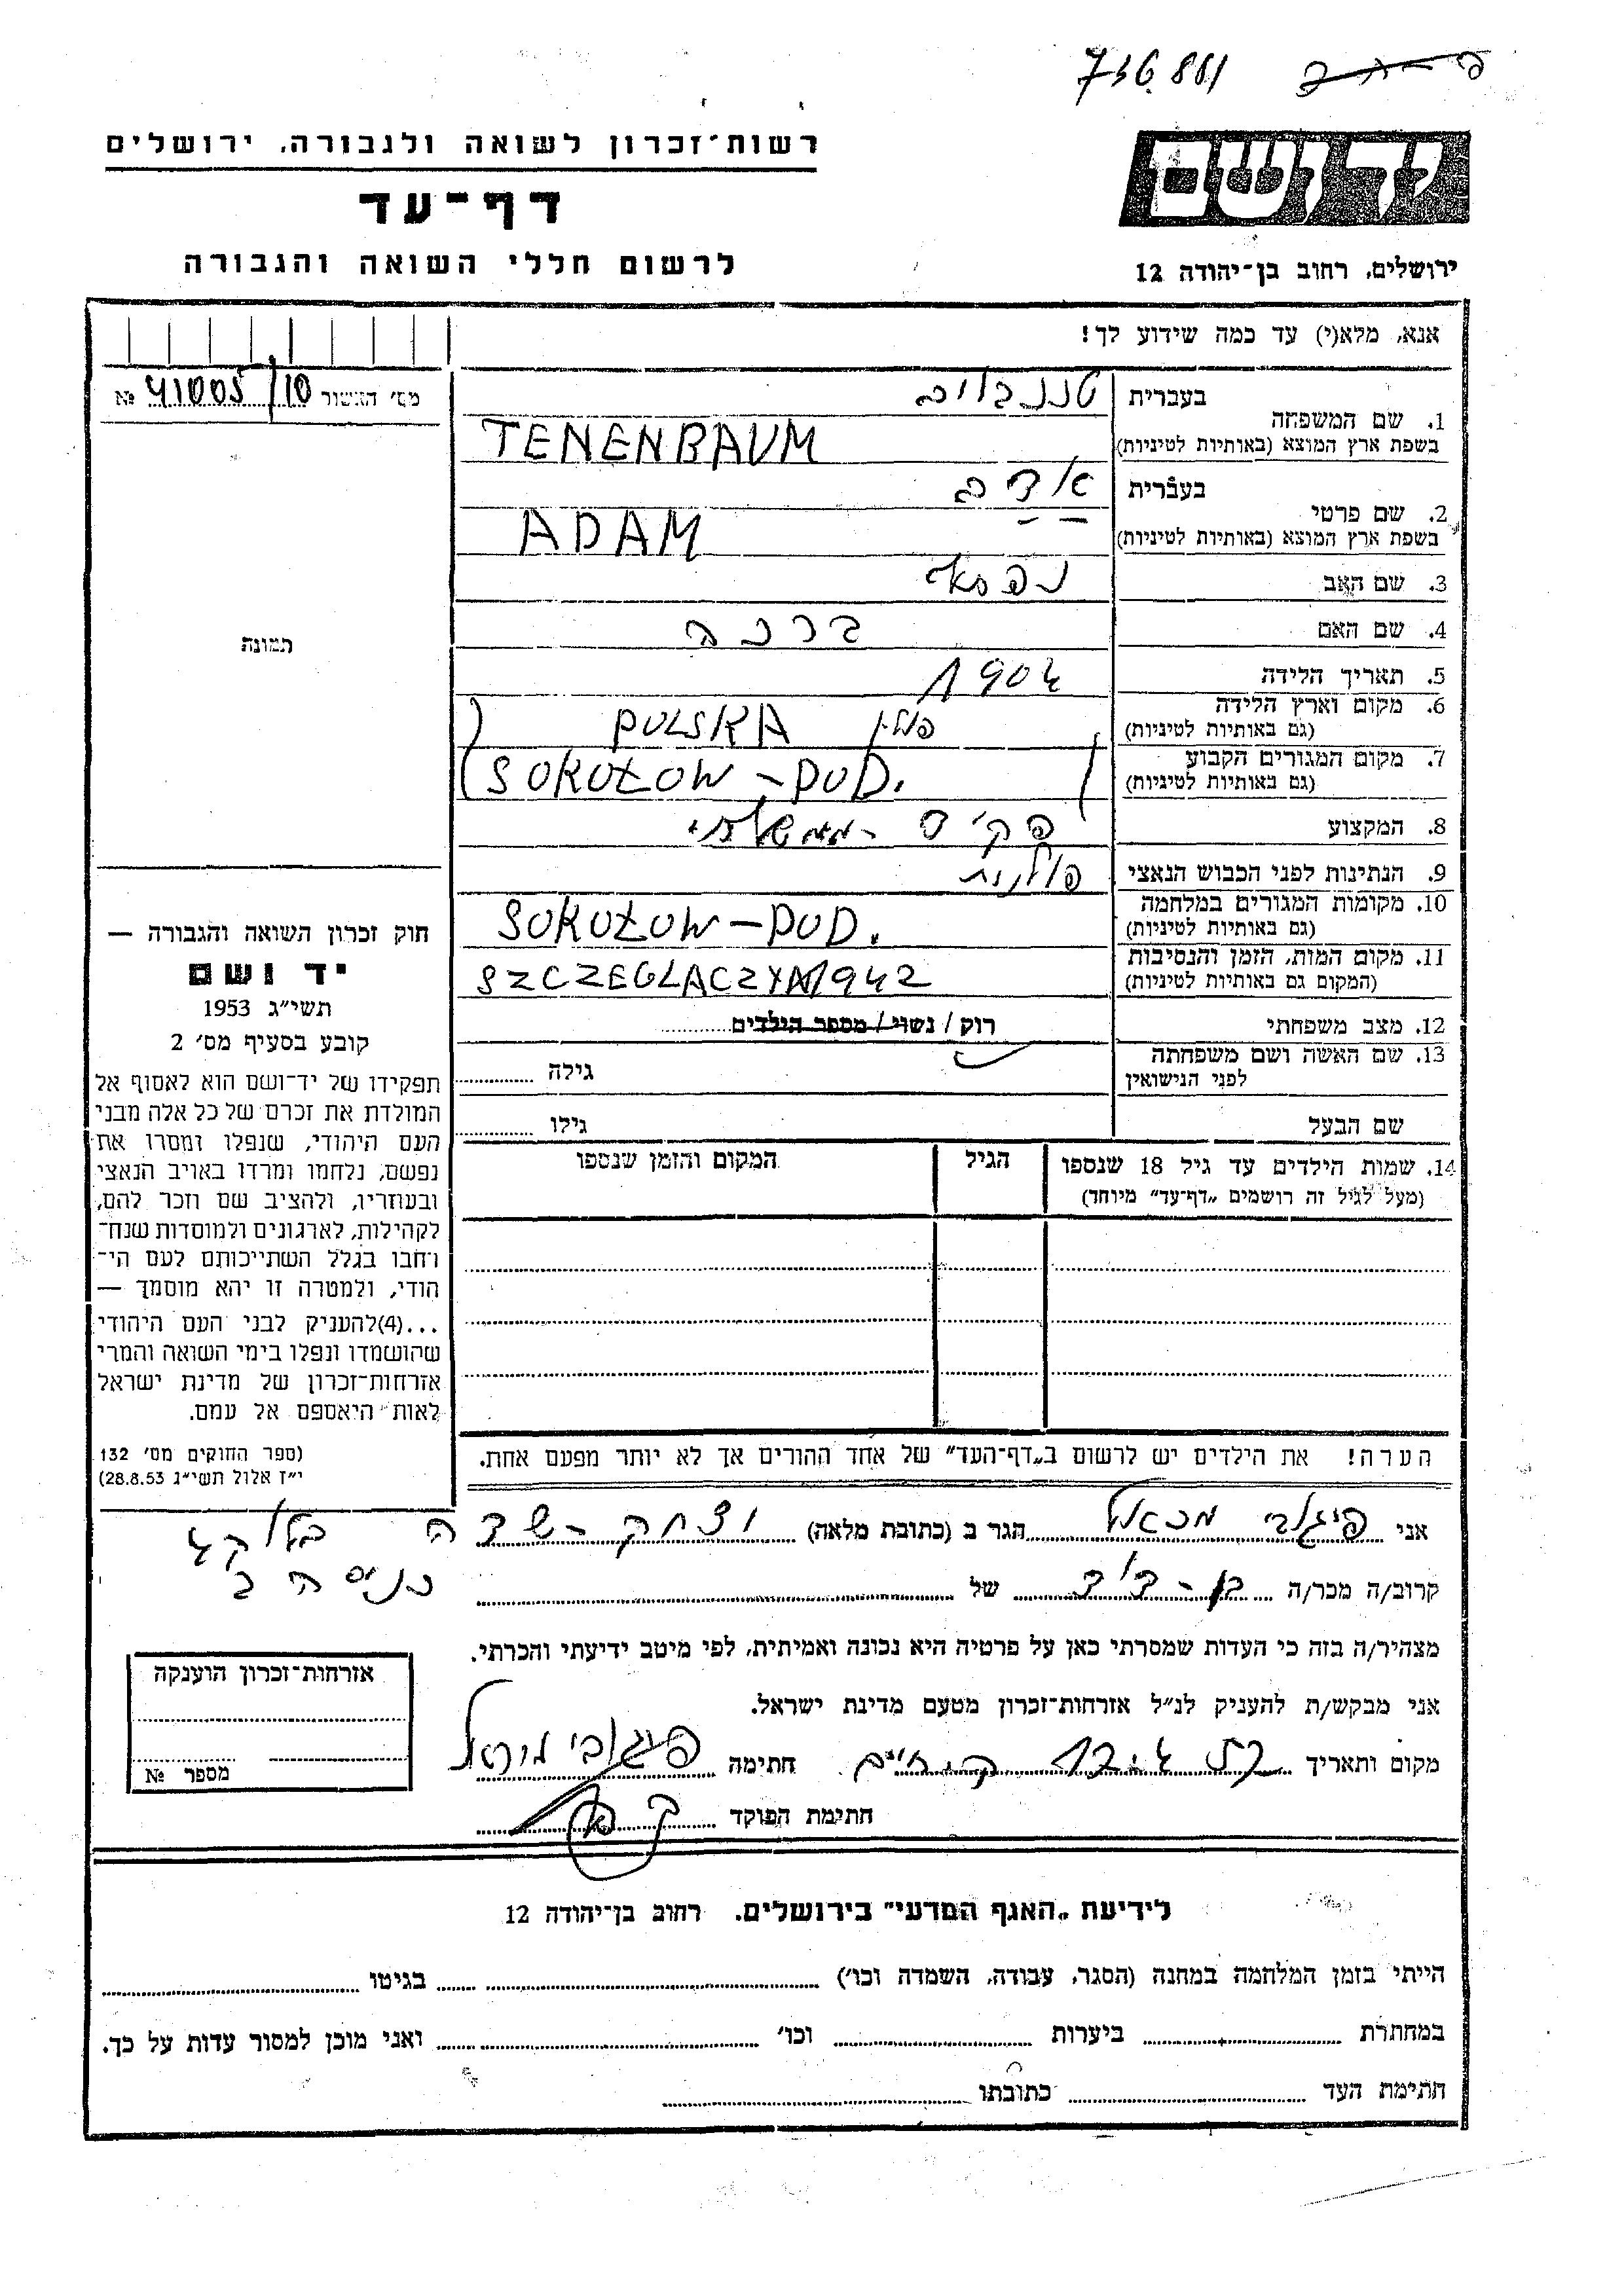 736.881
רשות־זכרון לשואה ולגבורה, ירושלים
יד ושם
דף־עד
לרשום חללי השואה והגבורה
ירושלים, רחוב בן־יהודה 12
אנא, מלא(י) עד כמה שידוע לך!
מס' האשור 41005/10 №
1. שם המשפחה
בעברית טננבוים
בשפת ארץ המוצא (באותיות לטיניות) TENENBAUM
2. שם פרטי
בעברית אדם
בשפת ארץ המוצא (באותיות לטיניות) ADAM
3. שם האב
4. שם האם ברכה
5. תאריך הלידה 1904
6. מקום וארץ הלידה
(גם באותיות לטיניות) פולין POLSKA
7. מקום המגורים הקבוע
(גם באותיות לטיניות) SOKOŁOW – POD.
8. המקצוע פקיד - ממשלתי
9. הנתינות לפני הכבוש הנאצי פולנית
10. מקומות המגורים במלחמה
(גם באותיות לטיניות) SOKOŁOW – POD.
11. מקום המות, הזמן והנסיבות
(המקום גם באותיות לטיניות) SZCZEGLACZYA 1942
12. מצב משפחתי רוק / נשוי / מספר הילדים
13. שם האשה ושם משפחתה
לפני הנישואין גילה
שם הבעל גילו
14. שמות הילדים עד גיל 18 שנספו
(מעל לגיל זה רושמים „דף־עד” מיוחד)
הגיל
המקום והזמן שנספו
הערה! את הילדים יש לרשום ב„דף־העד” של אחד ההורים אך לא יותר מפעם אחת.
תמונה
חוק זכרון השואה והגבורה —
יד ושם
תשי״ג 1953
קובע בסעיף מס׳ 2
תפקידו של יד־ושם הוא לאסוף אל
המולדת את זכרם של כל אלה מבני
העם היהודי, שנפלו ומסרו את
נפשם, נלחמו ומרדו באויב הנאצי
ובעוזריו, ולהציב שם וזכר להם,
לקהילות, לארגונים ולמוסדות שנח־
רחבו בגלל השתייכותם לעם הי־
הודי, ולמטרה זו יהא מוסמך —
...(4)להעניק לבני העם היהודי
שהושמדו ונפלו בימי השואה והמרי
אזרחות־זכרון של מדינת ישראל
לאות היאספם אל עמם.
(ספר החוקים מס׳ 132
י״ז אלול תשי״ג 28.8.53)
אני מכאל הגר ב (כתובת מלאה) יצחק - שדה בלוק
כניסה ב
קרוב/ה מכר/ה בן - דוד של
מצהיר/ה בזה כי העדות שמסרתי כאן על פרטיה היא נכונה ואמיתית, לפי מיטב ידיעתי והכרתי.
אני מבקש/ת להעניק לנ״ל אזרחות־זכרון מטעם מדינת ישראל.
מקום ותאריך חתימה
חתימת הפוקד
אזרחות־זכרון הוענקה
מספר №
לידיעת „האגף המדעי” בירושלים, רחוב בן־יהודה 12
הייתי בזמן המלחמה במחנה (הסגר, עבודה, השמדה וכו׳) בגיטו
במחתרת ביערות וכו׳ ואני מוכן למסור עדות על כך.
חתימת העד כתובתו